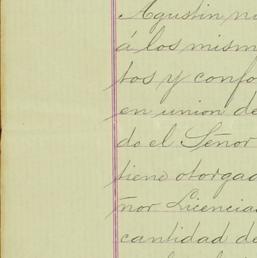 Agustin
á los mism
tos y confo
en union de
do el Señor
tiene otorgad
ñor Licencia
cantidad de